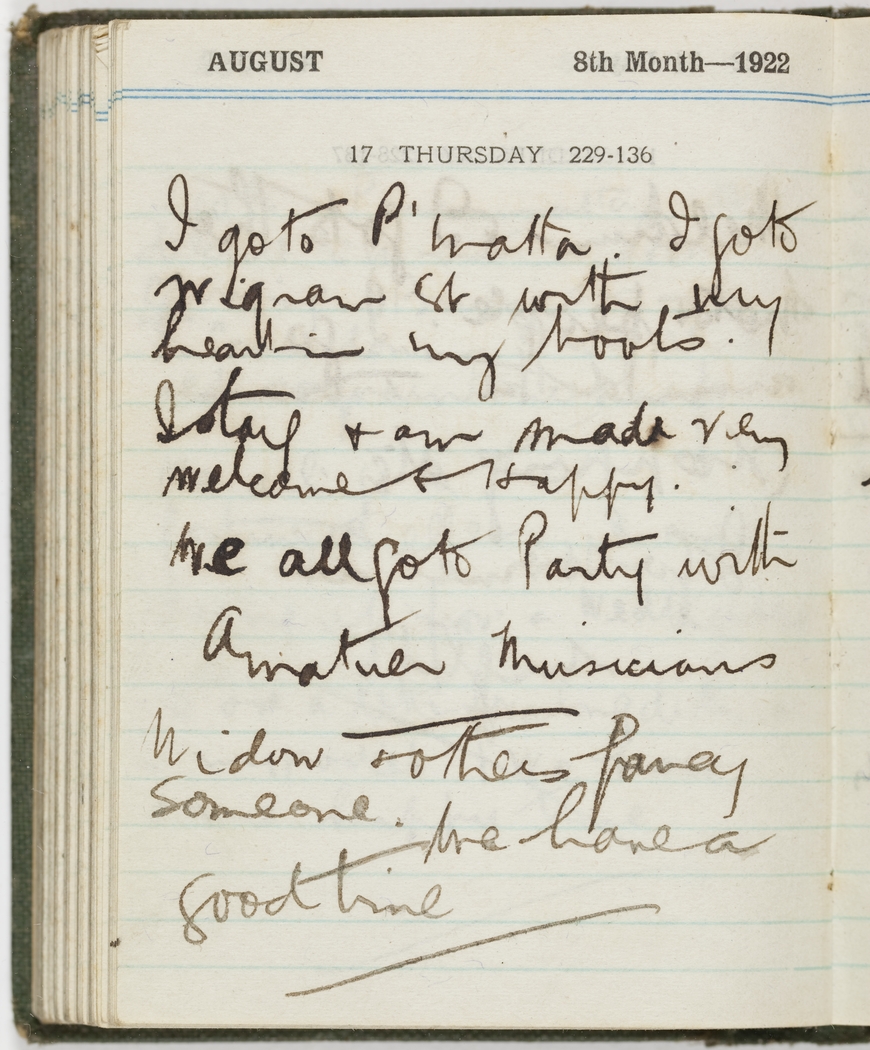 AUGUST 8th Month—1922
17 THURSDAY 229-136
I go to P'matta. I go to
Wigram St with my
heart in my boots.
I stay & am made very
welcome & Happy.
We all go to Party with
Amatuer Musicians
Widow & others fancy
someone. We have a
good time